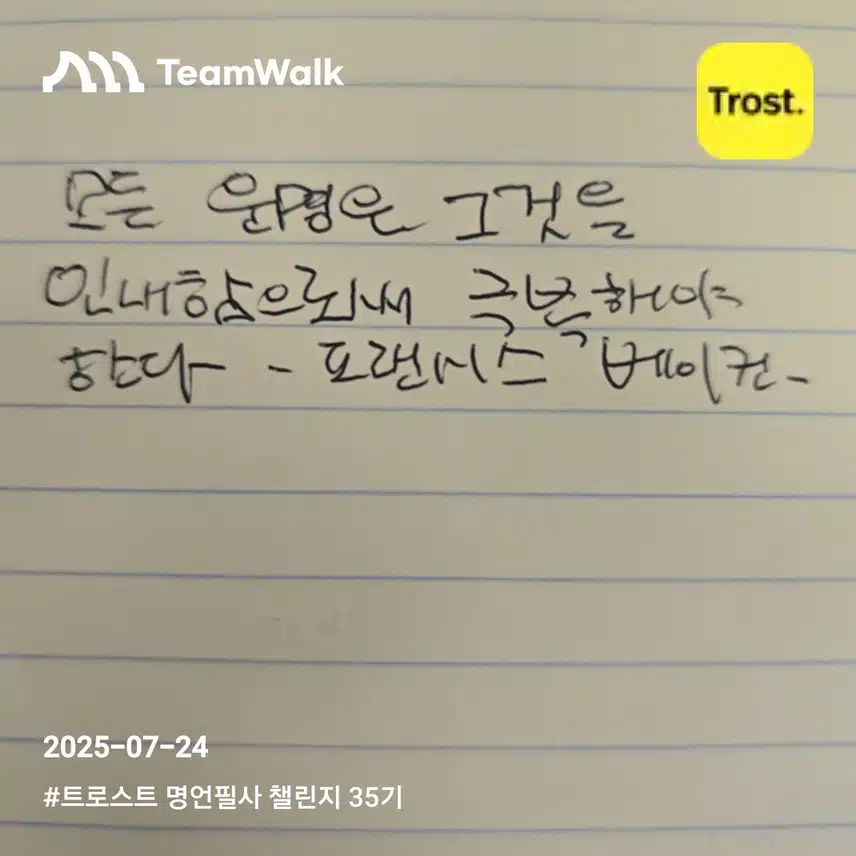 TeamWalk
Trost.
모든 운명은 그것을
인내함으로써 극복해야
한다 - 프랜시스 베이컨 -
2025-07-24
#트로스트 명언필사 챌린지 35기